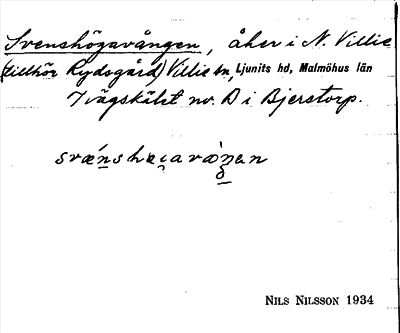 Svenshögavången, åker i N. Villie
(tillhör Rydsgård) Villie sn, Ljunits hd, Malmöhus län
Tvägskälet nv. D i Bjerstorp.
NILS NILSSON 1934